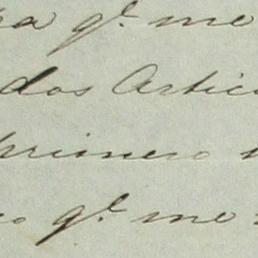 qe. me
dos Artic
primero
qe. me